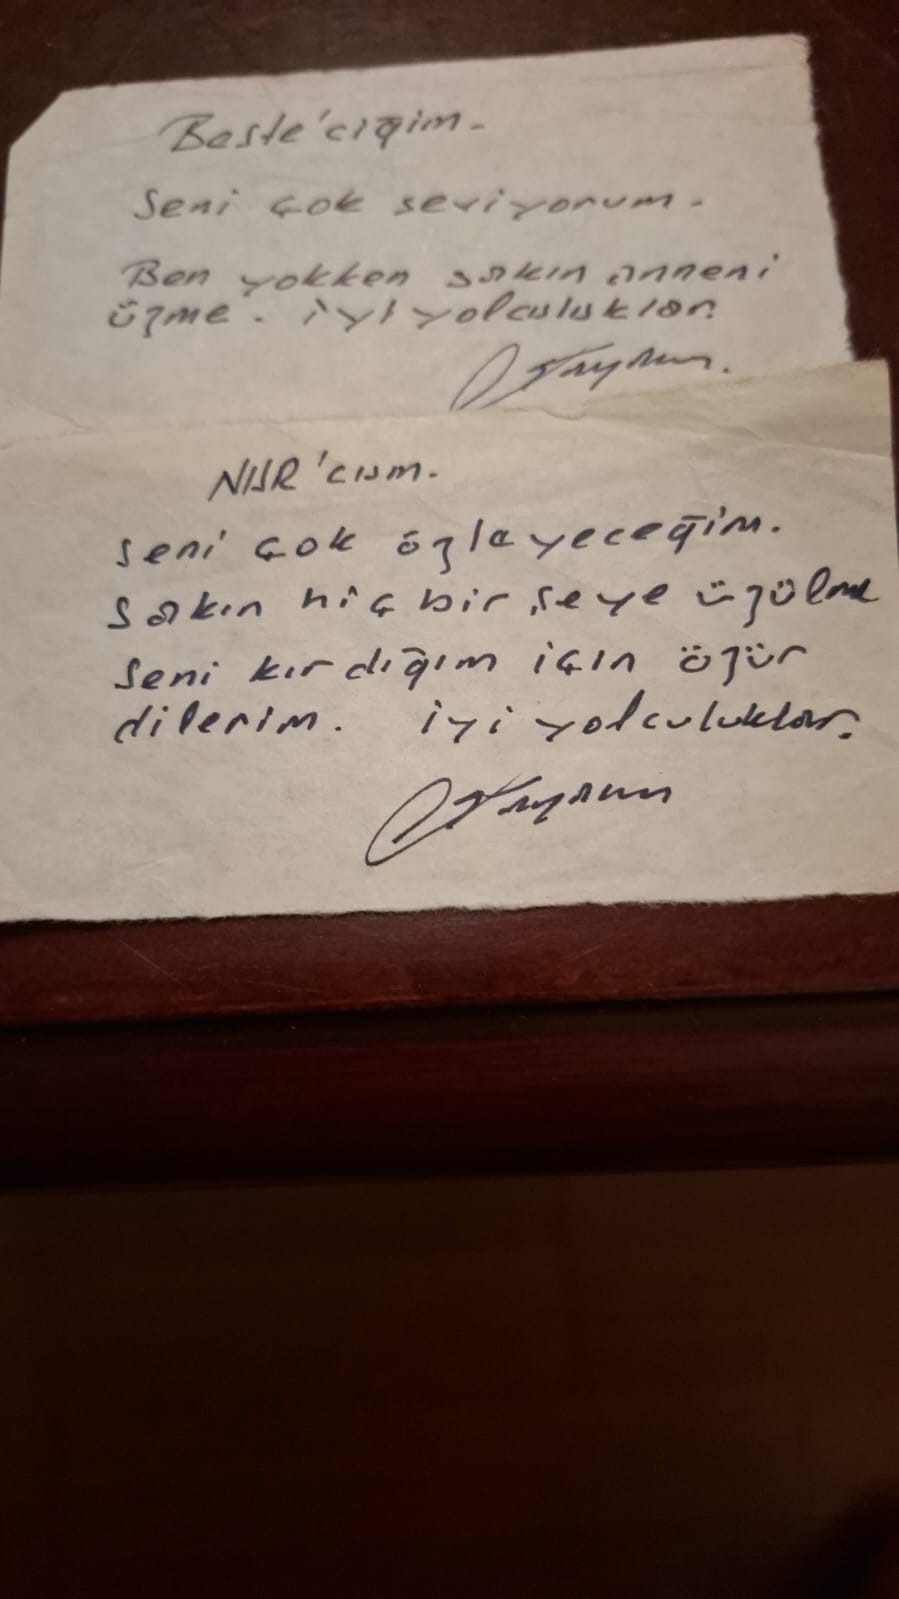 Beste'ciğim.
Seni çok seviyorum.
Ben yokken sakın anneni
üzme. iyi yolculuklar.
NUR'cum.
Seni çok özleyeceğim.
Sakın hiç bir şeye üzülme
Seni kırdığım için özür
dilerim. iyi yolculuklar.